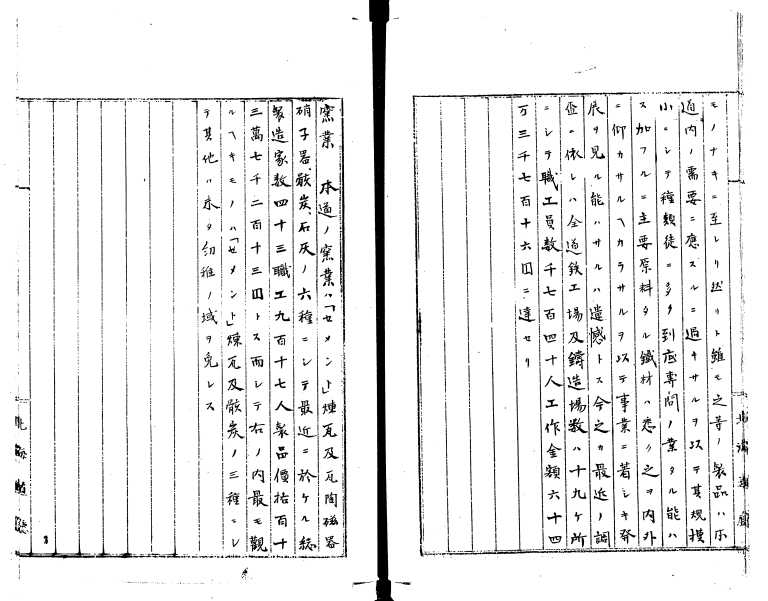 モノナキニ至レリ然リト雖モ之等ノ製品ハ
道内ノ需要ニ應スルニ過キサルヲ以テ其規模
小ニシテ種類徒ニ多ク到底専問ノ業タル能ハ
ス加フルニ主要原料タル鐵材ハ悉ク之ヲ内外
ニ仰カサルヘカラサルヲ以テ事業ニ著シキ發
展ヲ見ル能ハサルハ遺憾トス今之カ最近ノ調
査ニ依レハ全道鉄工場及鑄造場数ハ十九ケ所
ニシテ職工員数千七百四十人工作金額六十四
万三千七百十六円ニ達セリ
窯業　本道ノ窯業ハ「セメント」煉瓦及瓦陶磁器
硝子器、骸炭、石灰ノ六種ニシテ最近ニ於ケル総
製造家数四十三職工九百十七人製品價格百十
三萬七千二百十三円トス而シテ右ノ内最モ觀
ルヘキモノハ「セメント」煉瓦及骸炭ノ三種ニシ
テ其他ハ未タ幼稚ノ域ヲ免レス
北海道廳